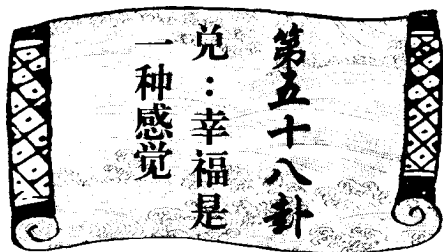 第五十八卦
兑：幸福是
一种感觉